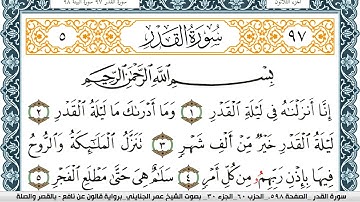 الجزء الثلاثون سورة القدر ٩٧ سورة البينة ٩٨
٩٧ سُورَةُ القَدْرِ ٥
بِسْمِ اللَّهِ الرَّحْمَٰنِ الرَّحِيمِ
إِنَّا أَنزَلْنَٰهُ فِي لَيْلَةِ الْقَدْرِ ١ وَمَا أَدْرَىٰكَ مَا لَيْلَةُ الْقَدْرِ ٢
لَيْلَةُ الْقَدْرِ خَيْرٌ مِّنْ أَلْفِ شَهْرٍ ٣ تَنَزَّلُ الْمَلَٰٓئِكَةُ وَالرُّوحُ
فِيهَا بِإِذْنِ رَبِّهِمُ مِن كُلِّ أَمْرٍ ٤ سَلَٰمٌ هِيَ حَتَّىٰ مَطْلَعِ الْفَجْرِ ٥
سورة القدر الصفحة ٥٩٨ الحزب ٦٠ الجزء ٣٠ بصوت الشيخ عمر الجنايني برواية قالون عن نافع - بالقصر والصلة